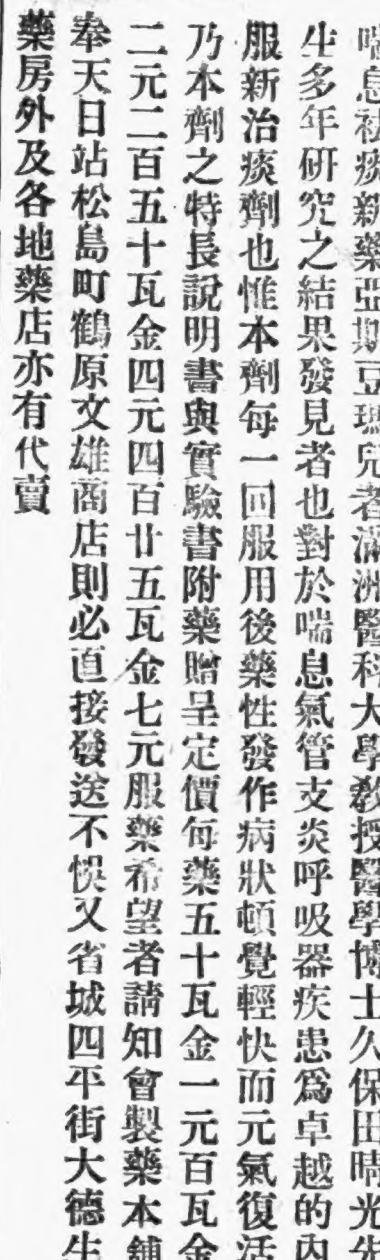 喘息袪痰新藥亞斯豆瑪兒者滿洲醫科大學敎授醫學博士久保田晴光先
生多年硏究之結果發見者也對於喘息氣管支炎呼吸器疾患爲卓越的內
服新治痰劑也惟本劑每一回服用後藥性發作病狀頓覺輕快而元氣復活
乃本劑之特長說明書與實驗書附藥贈呈定價每藥五十瓦金一元百瓦金
二元二百五十瓦金四元四百廿五瓦金七元服藥希望者請知會製藥本舖
奉天日站松島町鶴原文雄商店則必直接發送不悞又省城四平街大德生
藥房外及各地藥店亦有代賣